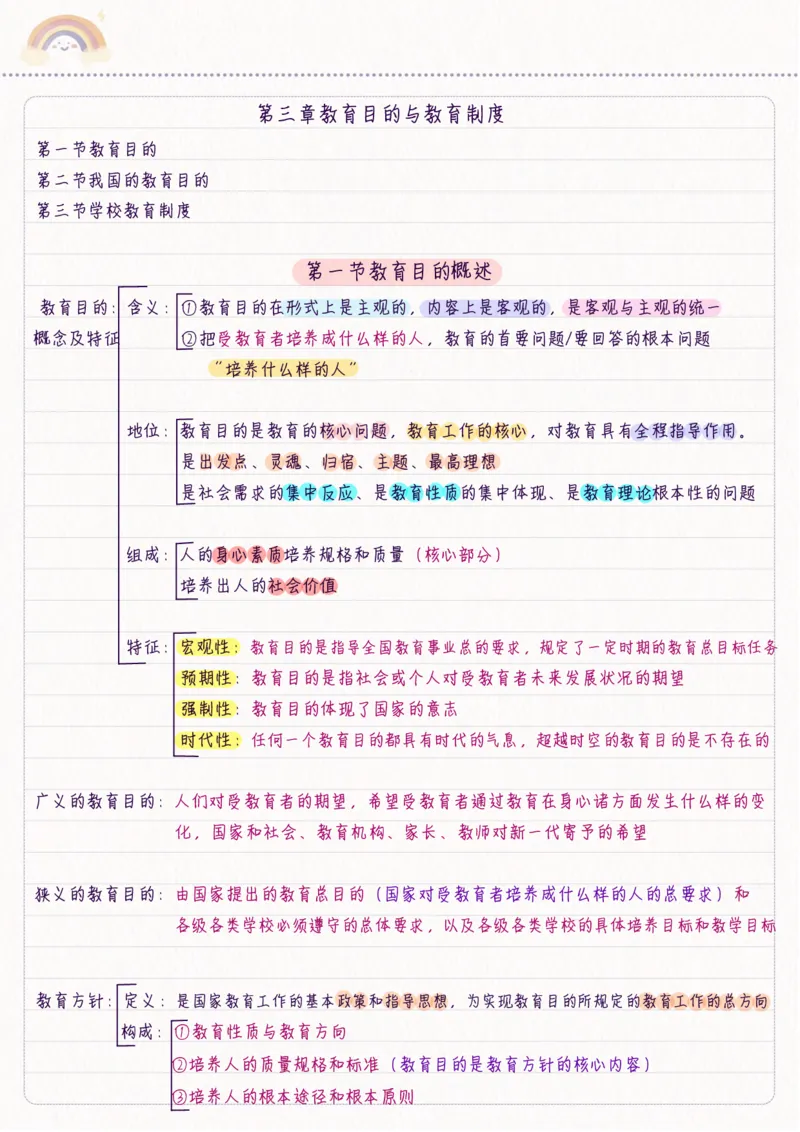 第三章教育目的与教育制度
第一节教育目的
第二节我国的教育目的
第三节学校教育制度
第一节教育目的概述
教育目的: 含义: ①教育目的在形式上是主观的, 内容上是客观的, 是客观与主观的统一
概念及特征 ②把受教育者培养成什么样的人, 教育的首要问题/要回答的根本问题
“培养什么样的人”
地位: 教育目的是教育的核心问题, 教育工作的核心, 对教育具有全程指导作用。
是出发点、灵魂、归宿、主题、最高理想
是社会需求的集中反应、是教育性质的集中体现、是教育理论根本性的问题
组成: 人的身心素质培养规格和质量 (核心部分)
培养出人的社会价值
特征: 宏观性: 教育目的是指导全国教育事业总的要求, 规定了一定时期的教育总目标任务
预期性: 教育目的是指社会或个人对受教育者未来发展状况的期望
强制性: 教育目的体现了国家的意志
时代性: 任何一个教育目的都具有时代的气息, 超越时空的教育目的是不存在的
广义的教育目的: 人们对受教育者的期望, 希望受教育者通过教育在身心诸方面发生什么样的变
化, 国家和社会、教育机构、家长、教师对新一代寄予的希望
狭义的教育目的: 由国家提出的教育总目的 (国家对受教育者培养成什么样的人的总要求) 和
各级各类学校必须遵守的总体要求, 以及各级各类学校的具体培养目标和教学目标
教育方针: 定义: 是国家教育工作的基本政策和指导思想, 为实现教育目的所规定的教育工作的总方向
构成: ①教育性质与教育方向
②培养人的质量规格和标准 (教育目的是教育方针的核心内容)
③培养人的根本途径和根本原则